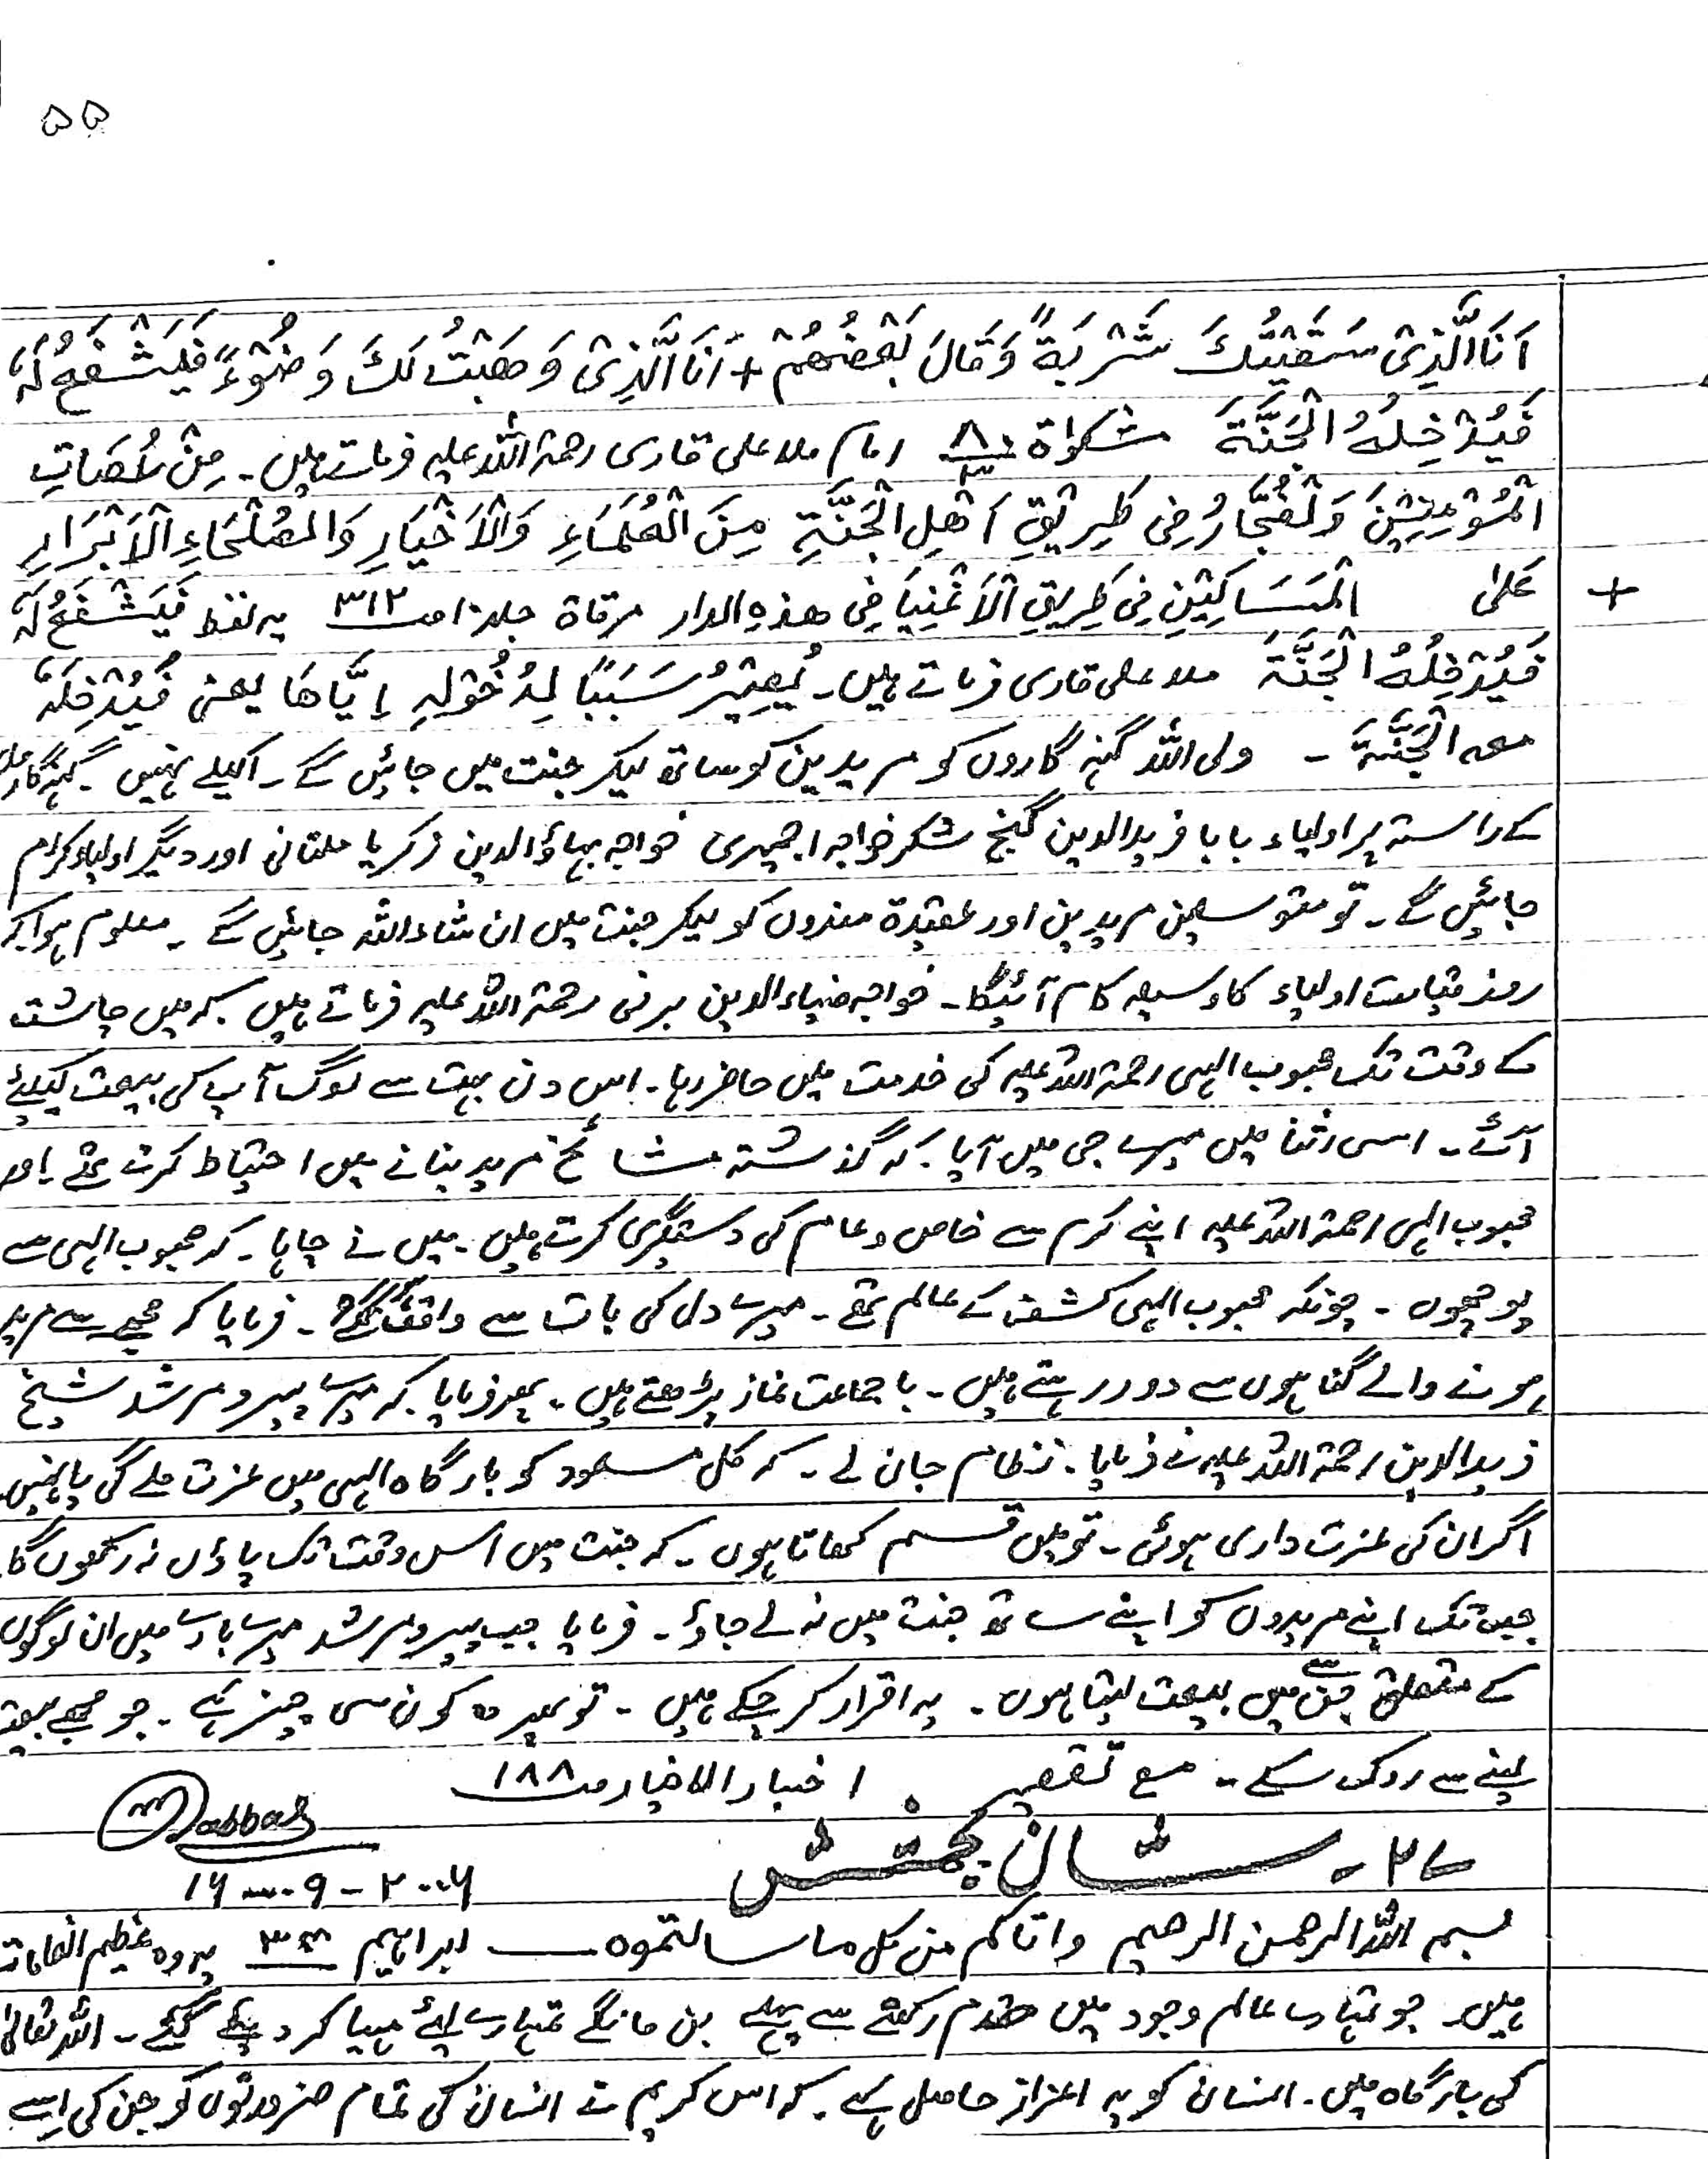 ۵۵
اَنَا الَّذِیْ سَقَیْتُكَ شَرْبَةً وَقَالَ بَعْضُهُمْ + اَنَا الَّذِیْ وَهَبْتُ لَكَ وَضُوْءً فَیَشْفَعُ لَهٗ
فَیُدْخِلُهُ الْجَنَّةَ مشکوٰة امام ملا علی قاری رحمۃ اللہ علیہ فرماتے ہیں۔ مِنْ عُصَاتِ
الْمُؤْمِنِیْنَ وَلْفُجَّارُ فِی طَرِیْقِ اَهْلِ الْجَنَّةِ مِنَ الْعُلَمَاءِ وَالْاَخْیَارِ وَالصُّلَحَاءِ الْاَبْرَارِ
+ عَلیٰ الْمَسَاکِیْنِ فِی طَرِیقِ الْاَغْنِیَا فِی هذهِ الدار مرقاة جلد ۱۰ صـ ۳۱۲ یہ لفظ فَیَشْفَعُ لَهٗ
فَیُدْخِلُهُ الْجَنَّةَ ملا علی قاری فرماتے ہیں۔ یُصِیْرُ سَبَبًا لِدُخُوْلِهِ اِیَّاهَا یعنی فَیُدْخِلَهٗ
معہ الْجَنَّةَ ۔ ولی اللہ گنہ گاروں کو مریدین کو ساتھ لیکر جنت میں جائیں گے۔ اکیلے نہیں۔ گنہگاروں
کے راستہ پر اولیاء بابا فریدالدین گنج شکر خواجہ اجمیری خواجہ بہاؤالدین زکریا ملتانی اور دیگر اولیاء کرام
جائیں گے۔ تو متوسلین مریدین اور عقیدۃ مندوں کو لیکر جنت میں ان شاء اللہ جائیں گے۔ معلوم ہوا کہ
روز قیامت اولیاء کا وسیلہ کام آئیگا۔ خواجہ ضیاء الدین برنی رحمۃ اللہ علیہ فرماتے ہیں کہ میں چاشت
کے وقت تک محبوب الہی رحمۃ اللہ علیہ کی خدمت میں حاضر رہا۔ اس دن بہت سے لوگ آپ کی بیعت کیلئے
آئے۔ اسی اثنا میں میرے جی میں آیا۔ کہ گذشتہ مشائخ مرید بنانے میں احتیاط کرتے تھے۔ اور
محبوب الہی رحمۃ اللہ علیہ اپنے کرم سے خاص و عام کی دستگیری کرتے ہیں۔ میں نے چاہا۔ کہ محبوب الہی سے
پوچھوں۔ چونکہ محبوب الہی کشف کے عالم تھے۔ میرے دل کی بات سے واقف ہوگئے۔ فرمایا کہ مجھے سے مرید
ہونے والے گناہوں سے دور رہتے ہیں۔ با جماعت نماز پڑھتے ہیں۔ پھر فرمایا۔ کہ میرے پیر و مرشد شیخ
فریدالدین رحمۃ اللہ علیہ نے فرمایا۔ نظام جان لے۔ کہ کل مسعود کو بارگاہ الہی میں عزت ملے گی یا نہیں
اگر ان کی عزت داری ہوئی۔ تو میں قسم کھاتا ہوں۔ کہ جنت میں اس وقت تک پاؤں نہ رکھوں گا
جب تک اپنے مریدوں کو اپنے ساتھ جنت میں نہ لے جاؤ۔ فرمایا جب پیر و مرشد میرے بارے میں ان لوگوں
کے متعلق جن سے میں بیعت لیتا ہوں۔ یہ اقرار کر چکے ہیں۔ تو پھر وہ کون سی چیز ہے۔ جو مجھے بیعت
لینے سے روک سکے۔ مع تقصیر اخبار الاخیار صـ ۱۸۸
abbas
۱۶-۹-۲۰۰۶
۲۷۔ شان بخشش
بسم اللہ الرحمن الرحیم واتاکم من کل ما سالتموه ابراہیم ۳۴ یہ وہ عظیم انعامات
ہیں۔ جو تمہارے عالم وجود میں قدم رکھنے سے پہلے بن مانگے تمہارے لئے مہیا کر دیئے گئے۔ اللہ تعالیٰ
کی بارگاہ میں۔ انسان کو یہ اعزاز حاصل ہے۔ کہ اس کریم نے انسان کی تمام ضرورتوں کو جن کی اسے